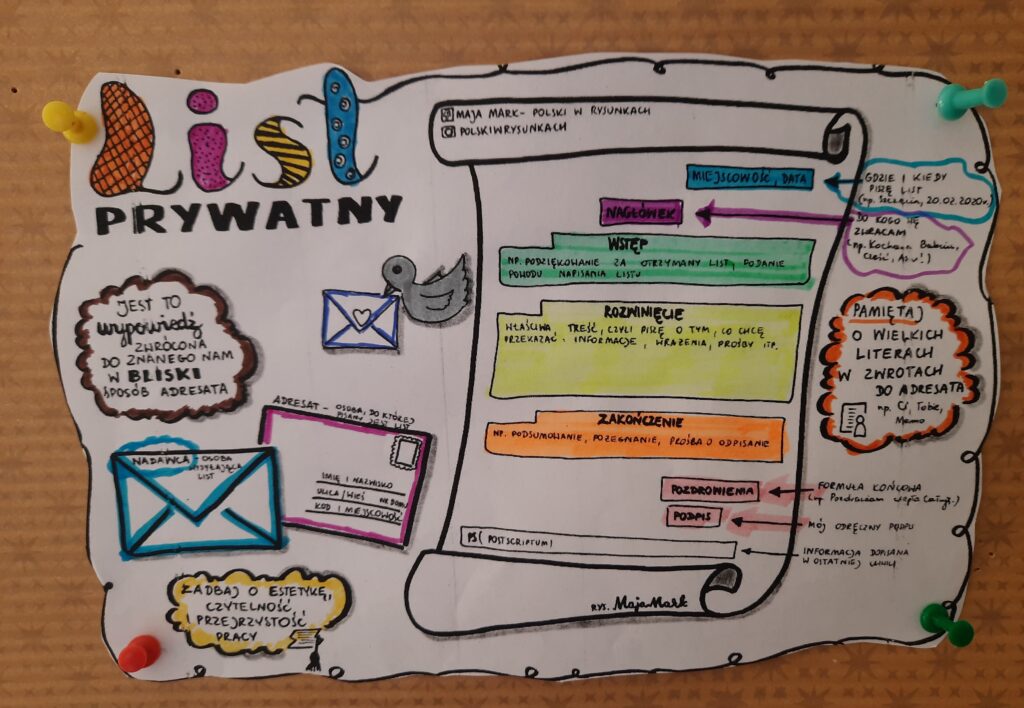 List
PRYWATNY
MAJA MARK- POLSKI W RYSUNKACH
POLSKIWRYSUNKACH
MIEJSCOWOŚĆ, DATA
GDZIE I KIEDY
PISZĘ LIST
(np. Szczecin, 20.02.2020r.)
NAGŁÓWEK
DO KOGO SIĘ
ZWRACAM
(np. Kochana Babciu,
Cześć, Asiu!)
WSTĘP
NP. PODZIĘKOWANIE ZA OTRZYMANY LIST, PODANIE
POWODU NAPISANIA LISTU
ROZWINIĘCIE
WŁAŚCIWA TREŚĆ, CZYLI PISZĘ O TYM, CO CHCĘ
PRZEKAZAĆ: INFORMACJE, WRAŻENIA, PROŚBY ITP.
ZAKOŃCZENIE
NP. PODSUMOWANIE, POŻEGNANIE, PROŚBA O ODPISANIE
POZDROWIENIA
FORMUŁA KOŃCOWA
(np. Pozdrawiam
PODPIS
MÓJ ODRĘCZNY PODPIS
PS( POSTSCRIPTUM)
INFORMACJA DOPISANA
W OSTATNIEJ CHWILI
RYS. MajaMark
JEST TO
wypowiedź
ZWRÓCONA
DO ZNANEGO NAM
W BLISKI
SPOSÓB ADRESATA
ADRESAT - OSOBA, DO KTÓREJ
PISANY JEST LIST
IMIĘ I NAZWISKO
ULICA/WIEŚ NR DOMU
KOD I MIEJSCOWOŚĆ
NADAWCA - OSOBA
WYSYŁAJĄCA
LIST
ZADBAJ O ESTETYKĘ,
CZYTELNOŚĆ,
PRZEJRZYSTOŚĆ
PRACY
PAMIĘTAJ
O WIELKICH
LITERACH
W ZWROTACH
DO ADRESATA
np. Ci, Tobie,
Mamo